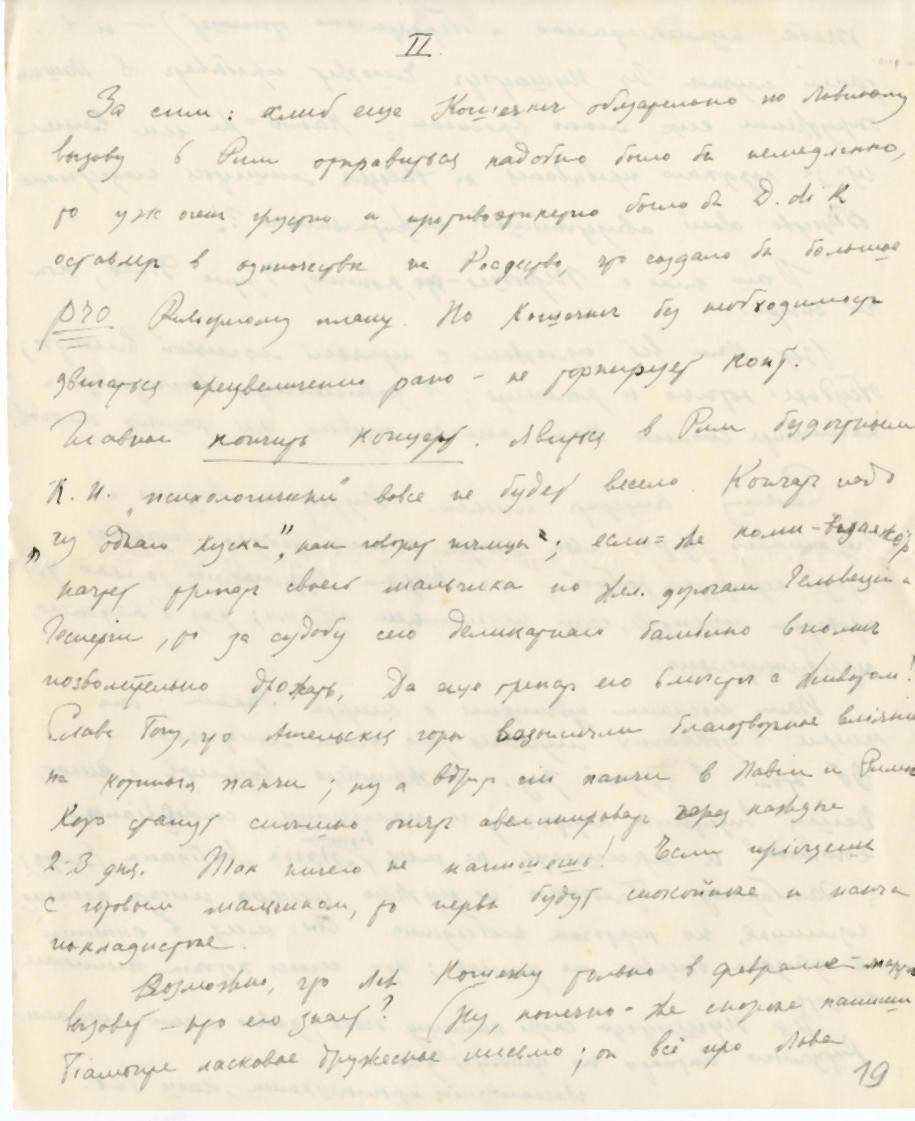 II
За сим: ежели б еще Кошечкић обязательно по Львиному
вызову в Рим отправиться надобно было бы немедленно,
то уж очень грустно и противоэтикетно было бы D. di R
оставить в одиночестве на Рождество, что создало бы большое
рчо Рильскому плану. Но Кошечкић без необходимости
двигаться преувеличенно рано – не торпирует конт.
Главное кончить концерт. Явиться в Рим бездетным
К. И. „психологически" вовсе не будет весело. Кончать надо
„из одного куска", как говорят немцы; если-же коми-вояжёр
начнет трепать своего мальчика по жел. дорогам Гельвеции и
Гесперии, то за судьбу сего деликатного бамбино вполне
позволительно дрожать. Да еще трепать его вместе с животом!
Слава Богу, что горы возымели благотворное влияние
на панчи; ну а вдруг сии панчи в Павии и Риме
Кого станут снова опять через каждые
2-3 дня. Так ничего не напишешь! Если приедешь
с готовым мальчиком, то нервы будут спокойнее и панча
покладистее.
Возможно, что Лев Кошечку только в феврале – марте
вызовет – кто его знает? (Ну, конечно-же скорее напиши
ласковое дружеское письмо; он всё про Льва
19